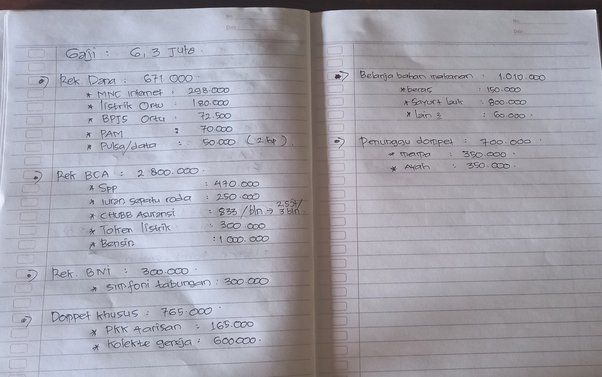 No:
Date:
Gaji : 6,3 Juta.
Rek Dana : 671.000
* MNC internet : 298.000
* listrik Ortu : 180.000
* BPJS Ortu : 72.500
* PAM : 70.000
* Pulsa/data : 50.000 (2 hp).
Rek BCA : 2 800.000
* Spp : 470.000
* Iuran sepatu roda : 250.000
* CHUBB Asuransi : 833/bln → 2.5jt/3 bln.
* Token listrik : 300 000
* Bensin : 1 000.000
Rek. BNI : 300.000
* simfoni tabungan : 300.000
Dompet khusus : 765.000
* PKK + arisan : 165.000
* kolekte gereja : 600000.
No:
Date:
Belanja bahan makanan : 1.010.000
* beras : 150.000
* Sayur + lauk : 800.000
* lain 2 : 60.000
Penunggu dompet : 700.000
* mama : 350.000
* Ayah : 350.000